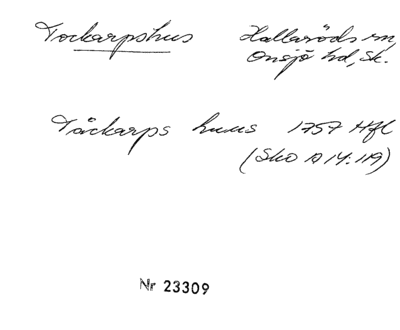 Tockarpshus Hallaröds sn,
Onsjö hd, Sk.
Tåckarps huus 1757 Hfl
(Sko A 14:119)
Nr 23309